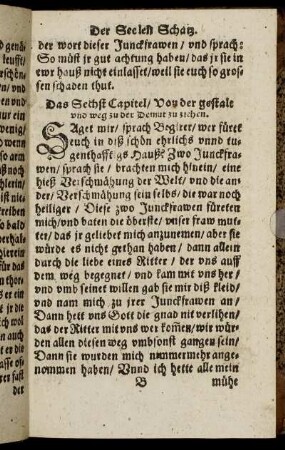 Der Seelen Schatz.
der wort dieser Junckfrawen / vnd sprach:
So müst jr gut achtung haben / das jr sie in
ewr hauß nicht einlasset / weil sie euch so gros-
sen schaden thut.
Das Sechst Capitel / Von der gestalt
vnd weg zu der Demut zu ziehen.
Saget mir / sprach Begirer / wer füret
euch in diß schön ehrlichs vnnd tu-
genthafftigs Hauß? Zwo Junckfra-
wen / sprach sie / brachten mich hinein / eine
hieß Verschmähung der Welt / vnd die an-
der / Verschmähung sein selbs / die war noch
heiliger / Diese zwo Junckfrawen füreten
mich / vnd baten die öberste / vnser fraw mut-
ter / das jr geliebet mich anzunemen / aber sie
würde es nicht gethan haben / dann allein
durch die liebe eines Ritter / der vns auff
dem weg begegnet / vnd kam mit vns her /
vnd vmb seinet willen gab sie mir diß kleid /
vnd nam mich zu jrer Junckfrawen an /
Dann hett vns Gott die gnad nit verlihen /
das der Ritter mit vns wer kom̃en / wir wür
den allen diesen weg vmbsonst gangen sein /
Dann sie wurden mich nimmermehr ange-
nommen haben / Vnnd ich hette alle mein
B mühe